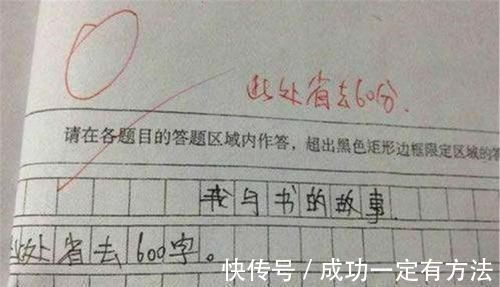 此处省去60分.
请在各题目的答题区域内作答，超出黑色矩形边框限定区域的答
我与书的故事
此处省去600字。
快传号/成功一定有方法